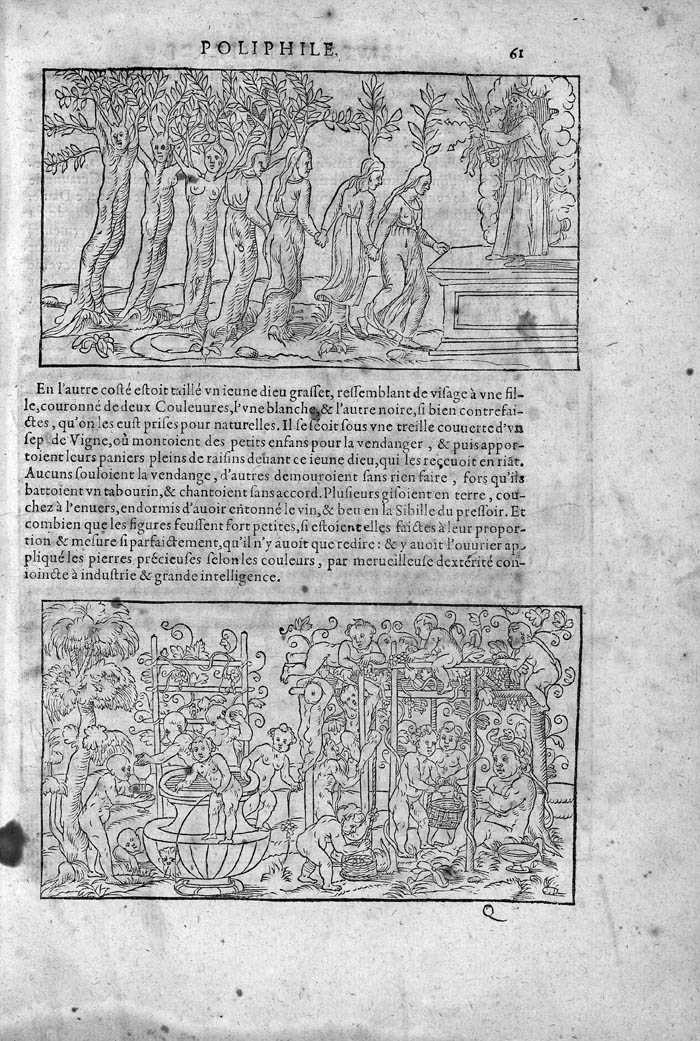 POLIPHILE. 61
En l'autre costé estoit taillé vn ieune dieu grasset, ressemblant de visage à vne fil-
le, couronné de deux Couleuures, l'vne blanche, & l'autre noire, si bien contrefai-
ctes, qu'on les eust prises pour naturelles. Il se seoit sous vne treille couuerte d'vn
sep de Vigne, où montoient des petits enfans pour la vendanger, & puis appor-
toient leurs paniers pleins de raisins deuant ce ieune dieu, qui les reçeuoit en riāt.
Aucuns fouloient la vendange, d'autres demouroient sans rien faire, fors qu'ils
battoient vn tabourin, & chantoient sans accord. Plusieurs gisoient en terre, cou-
chez à l'enuers, endormis d'auoir entonné le vin, & beu en la Sibille du pressoir. Et
combien que les figures feussent fort petites, si estoient elles faictes à leur propor-
tion & mesure si parfaictement, qu'il n'y auoit que redire: & y auoit l'ouurier ap-
pliqué les pierres précieuses selon les couleurs, par merueilleuse dextérité con-
ioincte à industrie & grande intelligence.
Q